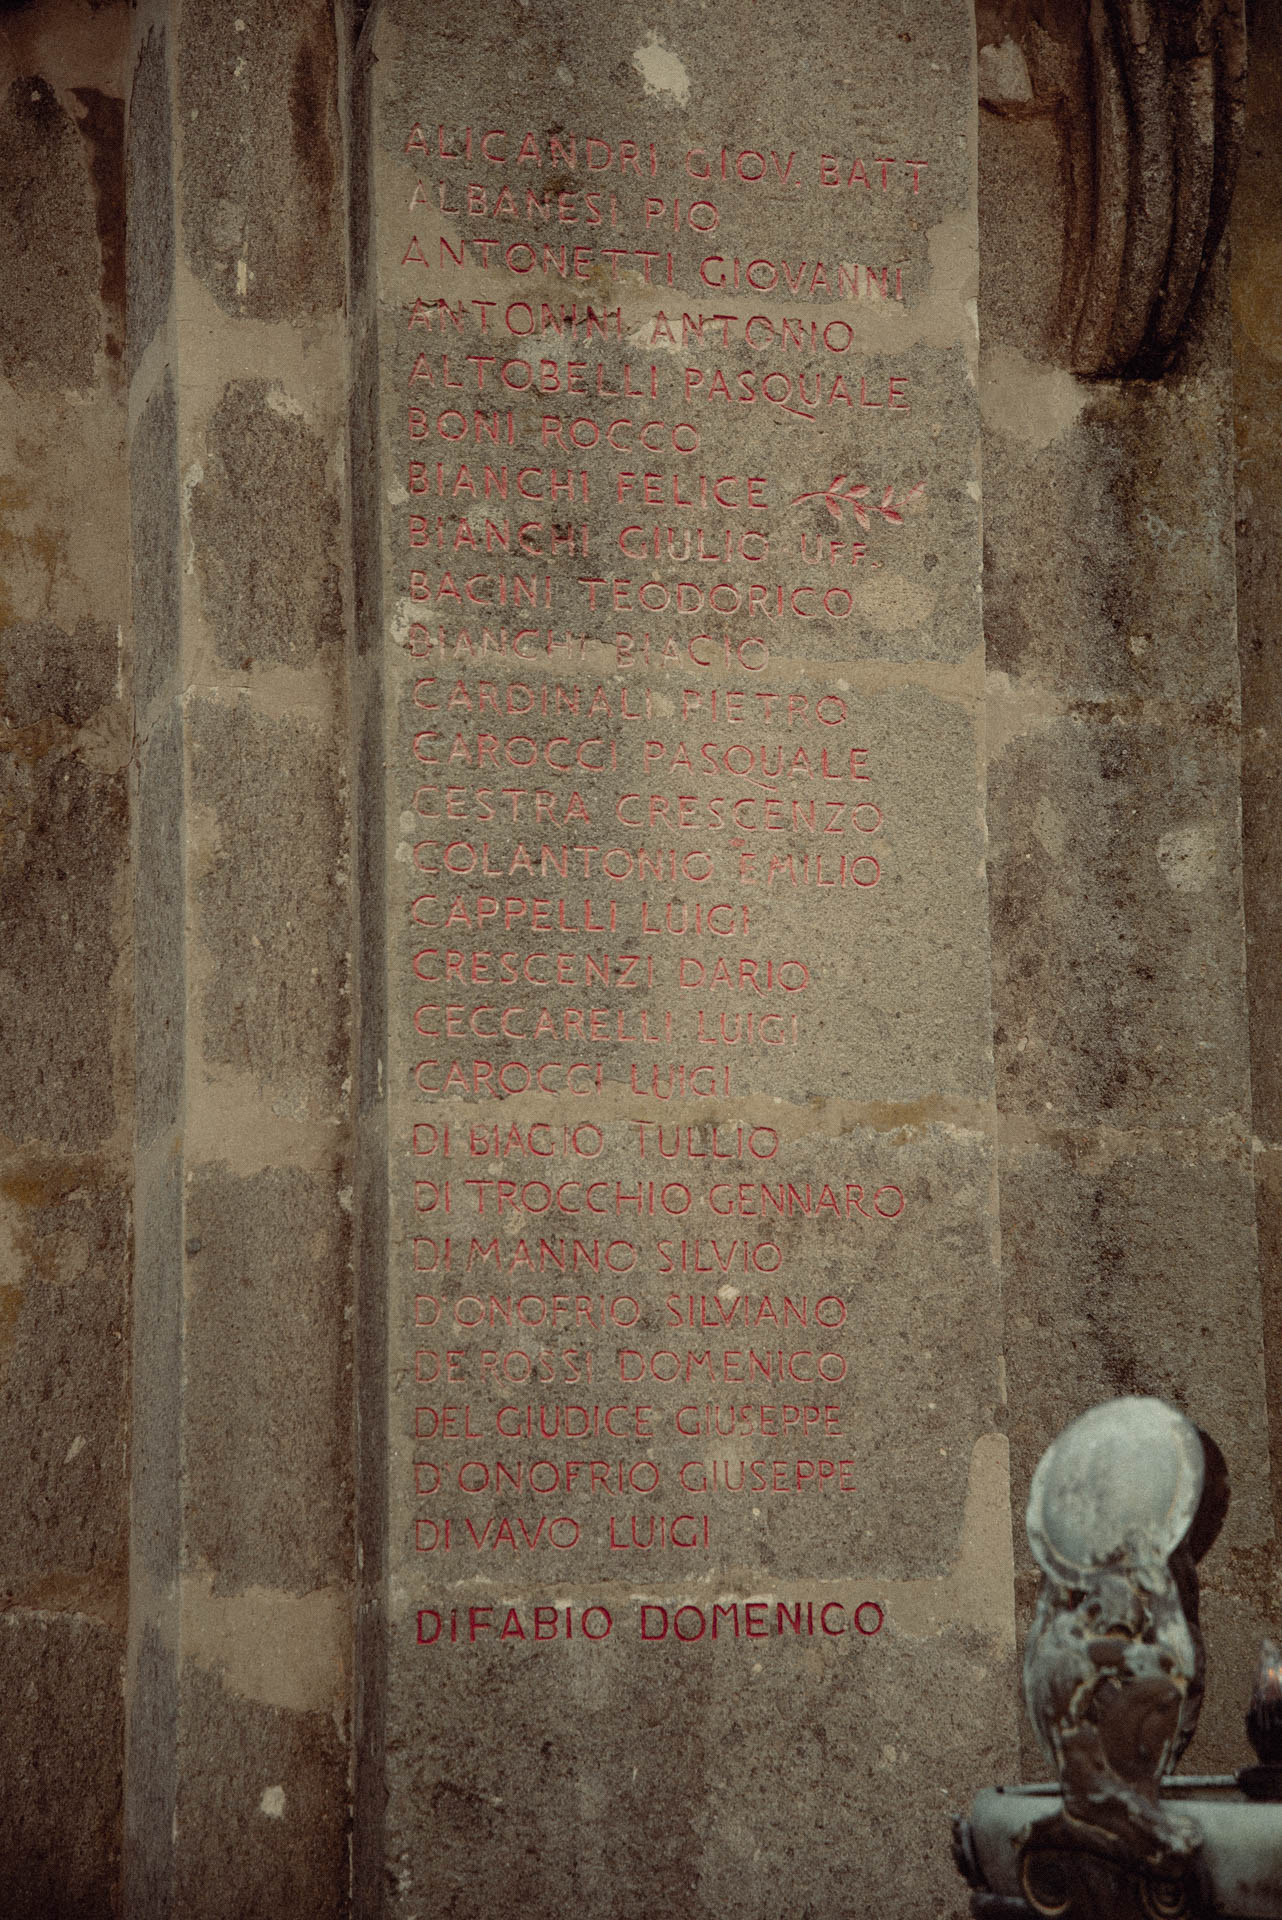 ALICANDRI GIOV. BATT
ALBANESI PIO
ANTONETTI GIOVANNI
ANTONINI ANTONIO
ALTOBELLI PASQUALE
BONI ROCCO
BIANCHI FELICE
BIANCHI GIULIO UFF.
BACINI TEODORICO
BIANCHI BIAGIO
CARDINALI PIETRO
CAROCCI PASQUALE
CESTRA CRESCENZO
COLANTONIO EMILIO
CAPPELLI LUIGI
CRESCENZI DARIO
CECCARELLI LUIGI
CAROCCI LUIGI
DI BIAGIO TULLIO
DI TROCCHIO GENNARO
DI MANNO SILVIO
D'ONOFRIO SILVIANO
DE ROSSI DOMENICO
DEL GIUDICE GIUSEPPE
D'ONOFRIO GIUSEPPE
DI VAVO LUIGI
DI FABIO DOMENICO